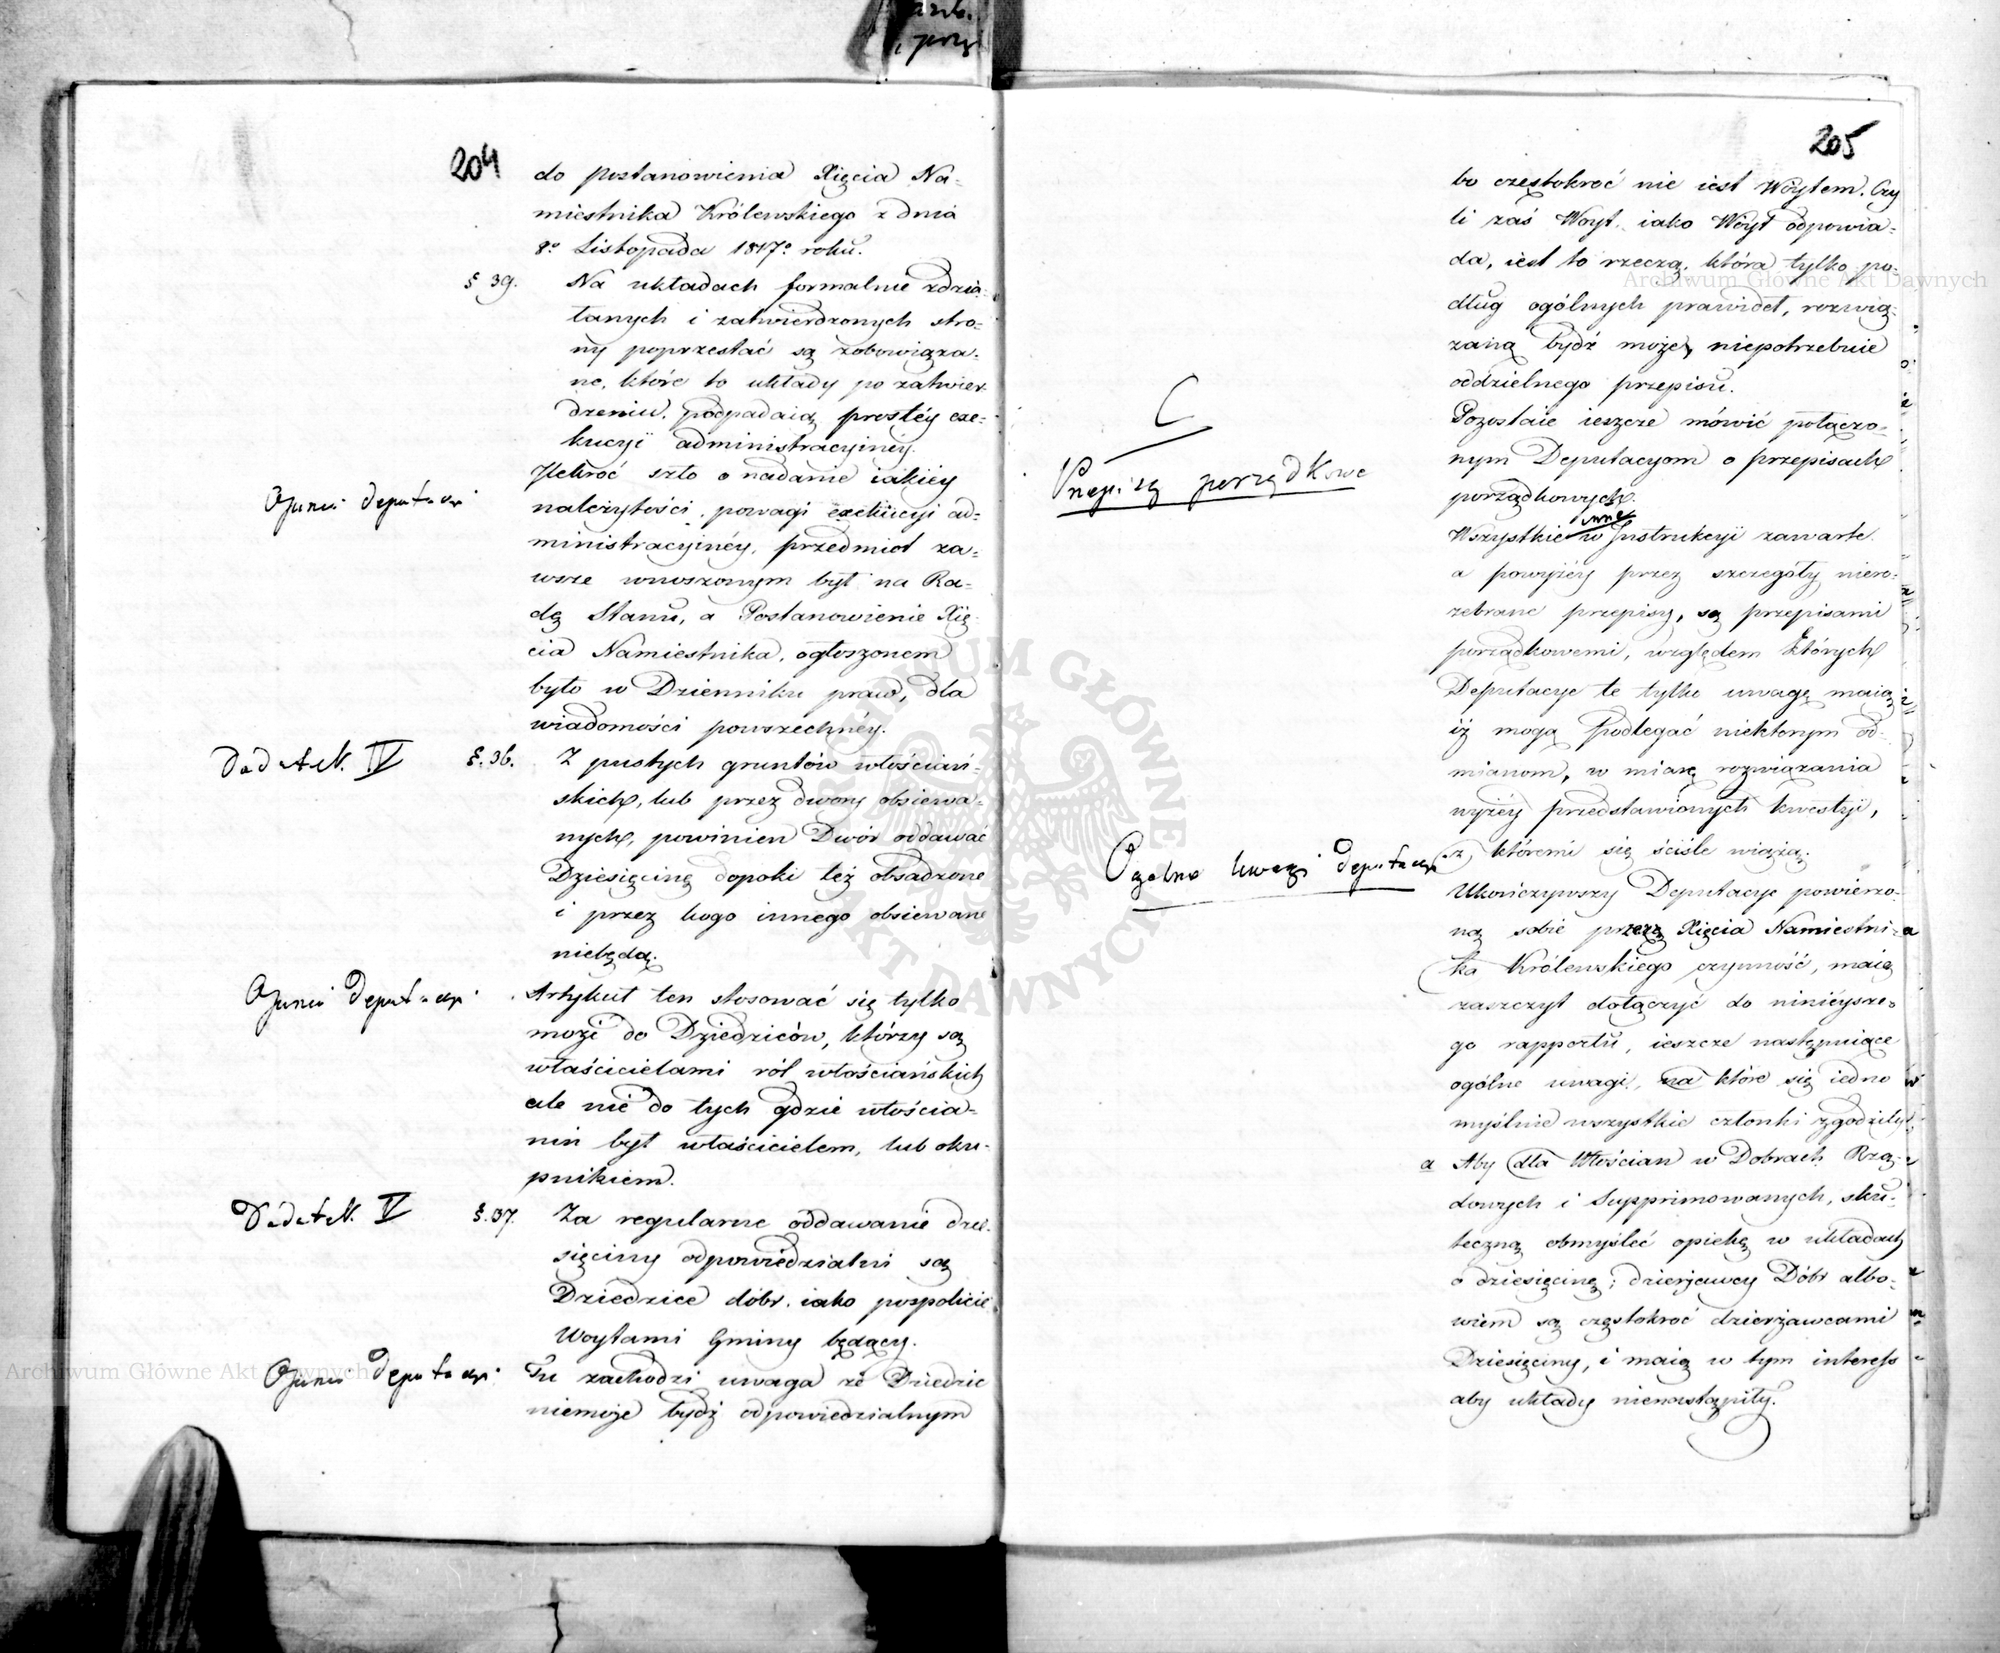 204
do postanowienia Xięcia Na-
miestnika Królewskiego z dnia
8º Listopada 1817º roku.
§ 39. Na układach formalnie zdzia-
łanych i zatwierdzonych stro-
ny poprzestać są zobowiąza-
ne, które to układy po zatwier-
dzeniu, podpadaią prostéy exe-
kucyi administracyinéy.
Opinia Deputacyi
Ilekroć szło o nadanie iakiéy
należytości, powagi exekucyi ad-
ministracyinéy, przedmiot za-
wsze wnoszonym był na Ra-
dę Stanu, a Postanowienie Xię-
cia Namiestnika, ogłoszonem
było w Dzienniku praw, dla
wiadomości powszechnéy.
Dodatek IV
§. 36. Z pustych gruntów włościań-
skich, lub przez dwory obsiewa-
nych, powinien Dwór oddawać
Dziesięcinę dopoki też obsadzone
i przez kogo innego obsiewane
niebędą.
Opinia Deputacyi
Artykuł ten stosować się tylko
może do Dziedziców, którzy są
właścicielami ról włościańskich
ale nie do tych gdzie włościa-
nin był właścicielem, lub oku-
pnikiem.
Dodatek V
§. 37. Za regularne oddawanie dzie-
sięciny odpowiedzialni są
Dziedzice dóbr, iako pospolicie
Woytami Gminy będący.
Opinia Deputacyi
Tu zachodzi uwaga że Dziedzic
niemoże bydź odpowiedzialnym
205
bo częstokroć nie iest Wóytem. Czy
li zaś Woyt, iako Wóyt odpowia-
da, iest to rzeczą, która tylko po-
dług ogólnych prawideł, rozwią-
zaną bydź może, niepotrzebuie
oddzielnego przepisu.
C
Przepisy porządkowe
Pozostaie ieszcze mówić połączo-
nym Deputacyom o przepisach
porządkowych.
inne
Wszystkie w Instrukcyi zawarte
a powyżéy przez szczegóły niero-
zebrane przepisy, są przepisami
porządkowemi, względem których
Deputacye te tylko uwagę maią
iż mogą podlegać niektorym od-
mianom, w miarę rozwiązania
wyżéy przedstawionych kwestyi,
z któremi się ściśle wiążą.
Ogolne Uwagi Deputacyi
Ukończywszy Deputacye powierzo-
ną sobie przez Xięcia Namiestni-
ka Królewskiego czynność, maią
zaszczyt dołączyć do ninieysze-
go rapportu, ieszcze następuiące
ogólne uwagi, na które się iedno
myślnie wszystkie członki zgodziły.
a Aby dla Włościan w Dobrach Rzą-
dowych i Supprimowanych, sku-
teczną obmyśleć opiekę w układach
o dziesięcinę; dzierżawcy Dóbr albo-
wiem są częstokroć dzierżawcami
Dziesięciny, i maią w tym interess
aby układy nienastąpiły.
Archiwum Główne Akt Dawnych
Archiwum Główne Akt Dawnych
ARCHIWUM GŁÓWNE AKT DAWNYCH